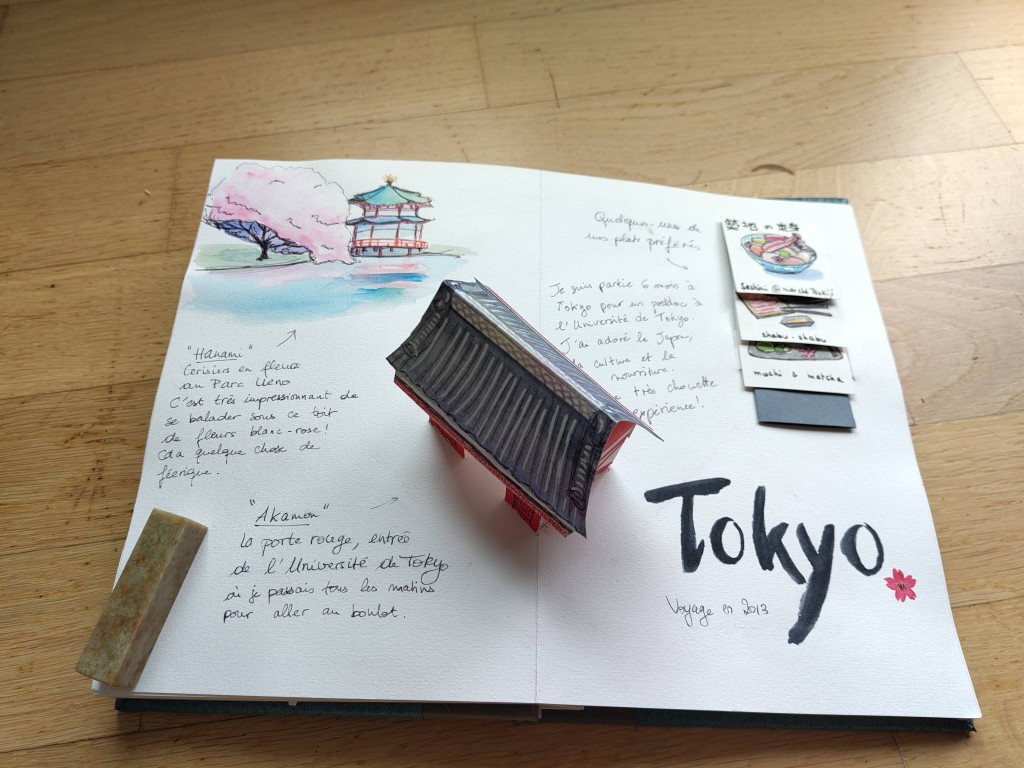 "Hanami"
Cerisiers en fleurs
au Parc Ueno
C'est très impressionnant de
se balader sous ce toit
de fleurs blanc-rose!
Ca a quelque chose de
féerique.
"Akamon"
La porte rouge, entrée
de l'Université de Tokyo
où je passais tous les matins
pour aller au boulot.
Quelques-unes de
mes plats préférés
Je suis partie 6 mois à
Tokyo pour un postdoc à
l'Université de Tokyo.
J'ai adoré le Japon,
la culture et la
nourriture.
très chouette
expérience!
築地の
Sashimi @ marché Tsukiji
shabu-shabu
mochi & matcha
Tokyo
Voyage en 2013